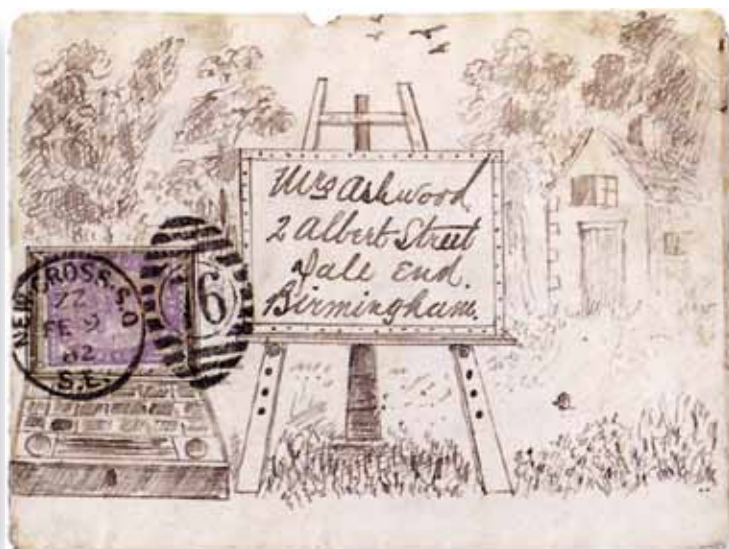 Mrs Ashwood
2 Albert Street
Dale End.
Birmingham.
NEW CROSS. S.O
FE 9
82
S.E.